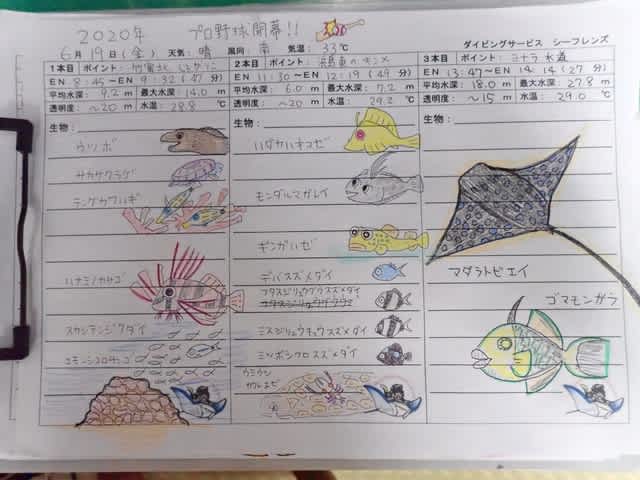 2020年 プロ野球開幕!!
6月19日(金) 天気:晴 風向:南 気温:33℃
ダイビングサービス シーフレンズ
1本目 ポイント:竹富北
EN 8:45~EN 9:32(47分)
平均水深:9.2m 最大水深:14.0m
透明度:~20m 水温:28.8℃
生物:
ウツボ
サカサクラゲ
テングカワハギ
ハナミノカサゴ
スカシテンジクダイ
2本目 ポイント:
EN 11:30~EN 12:19(49分)
平均水深:6.0m 最大水深:7.2m
透明度:~20m 水温:29.2℃
生物:
モンダルマガレイ
ギンガハゼ
デバスズメダイ
フタスジリュウキュウスズメダイ
ミスジリュウキュウスズメダイ
ミツボシクロスズメダイ
ウミウシ
カクレエビ
3本目 ポイント:ヨナラ水道
EN 13:47~EN 14:14(27分)
平均水深:18.0m 最大水深:27.8m
透明度:~15m 水温:29.0℃
生物:
マダラトビエイ
ゴマモンガラ